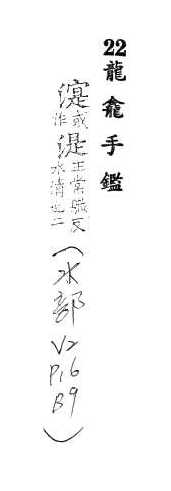 22龍龕手鑑
或作湜正常職反水清也二(水部 V2 P16 B9)